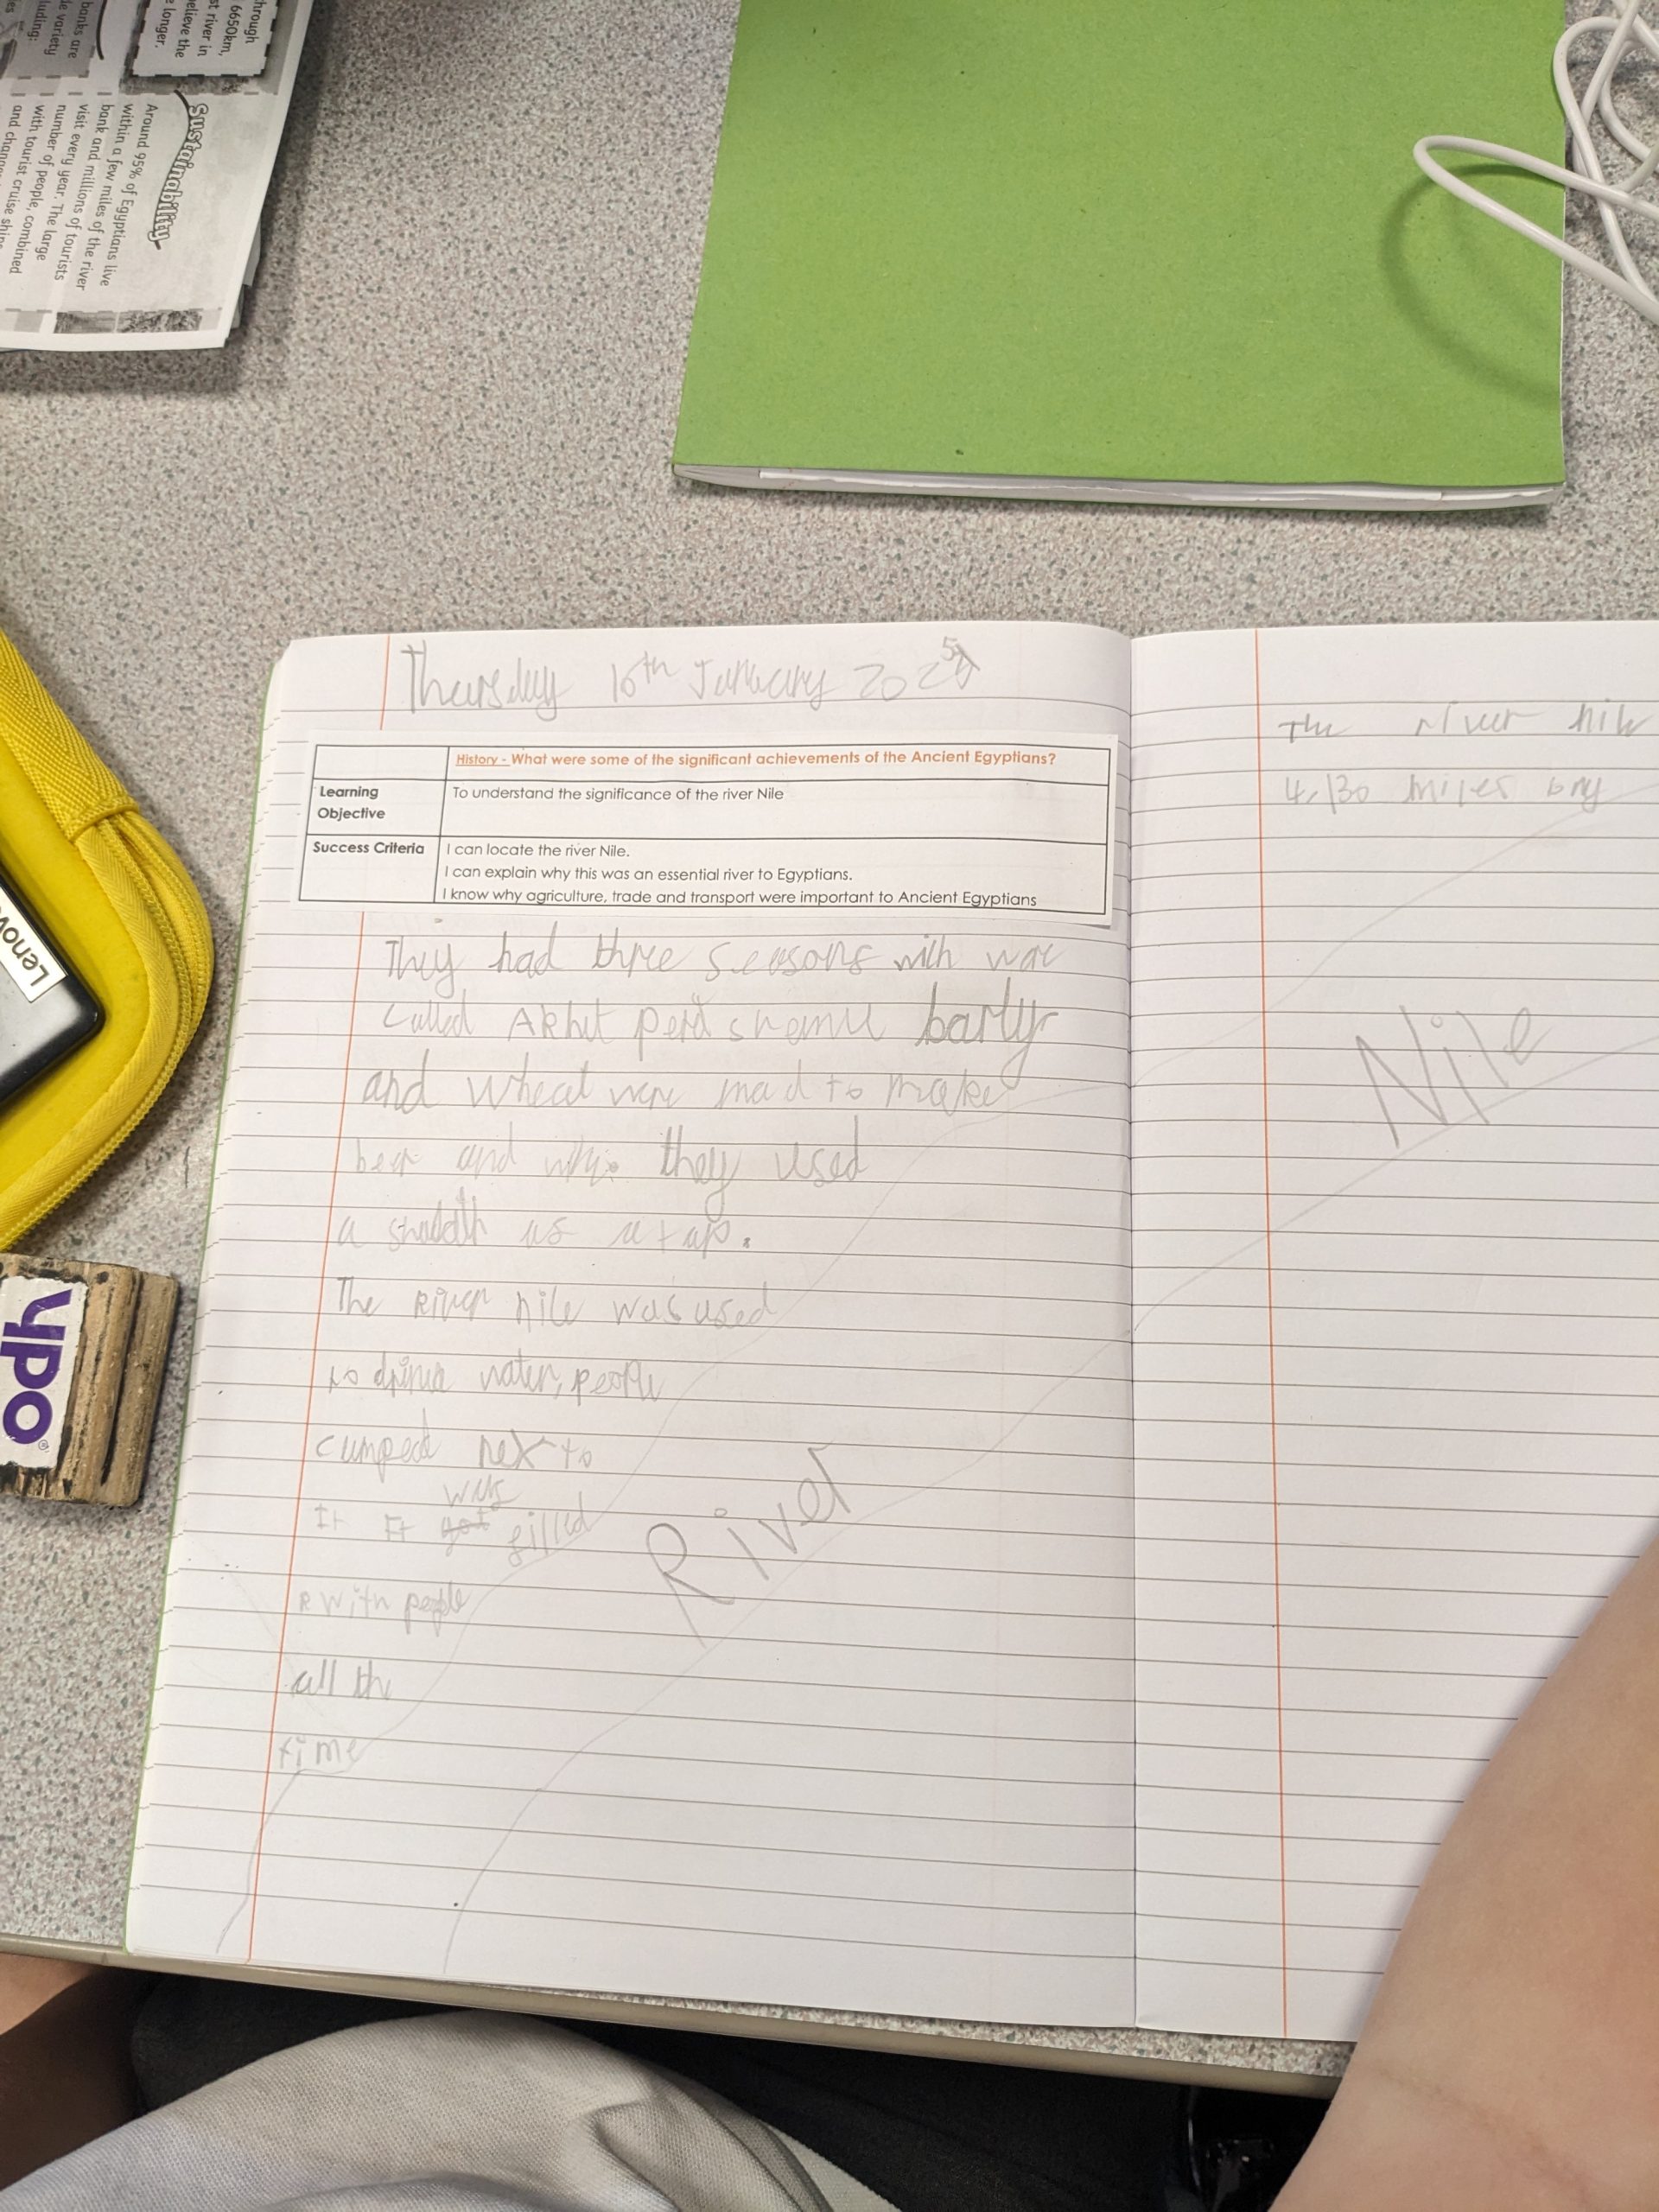 hrough
6650km,
st river in
elieve the
e longer.
banks are
le variety
luding:
Sustainability
Around 95% of Egyptians live
within a few miles of the river
bank and millions of tourists
visit every year. The large
number of people, combined
with tourist cruise ships
Lenov
ypo
Thursday 16th January 2025
History - What were some of the significant achievements of the Ancient Egyptians?
Learning Objective
To understand the significance of the river Nile
Success Criteria
I can locate the river Nile.
I can explain why this was an essential river to Egyptians.
I know why agriculture, trade and transport were important to Ancient Egyptians
They had three seasons with
called Akhet peret shemu barly
and wheat were mad to make
beer and they used
a as a tap.
The River nile was used
to water, people
camped nex to
It It was filled
with people
all the
time
River
The river nile
4,130 miles long
Nile